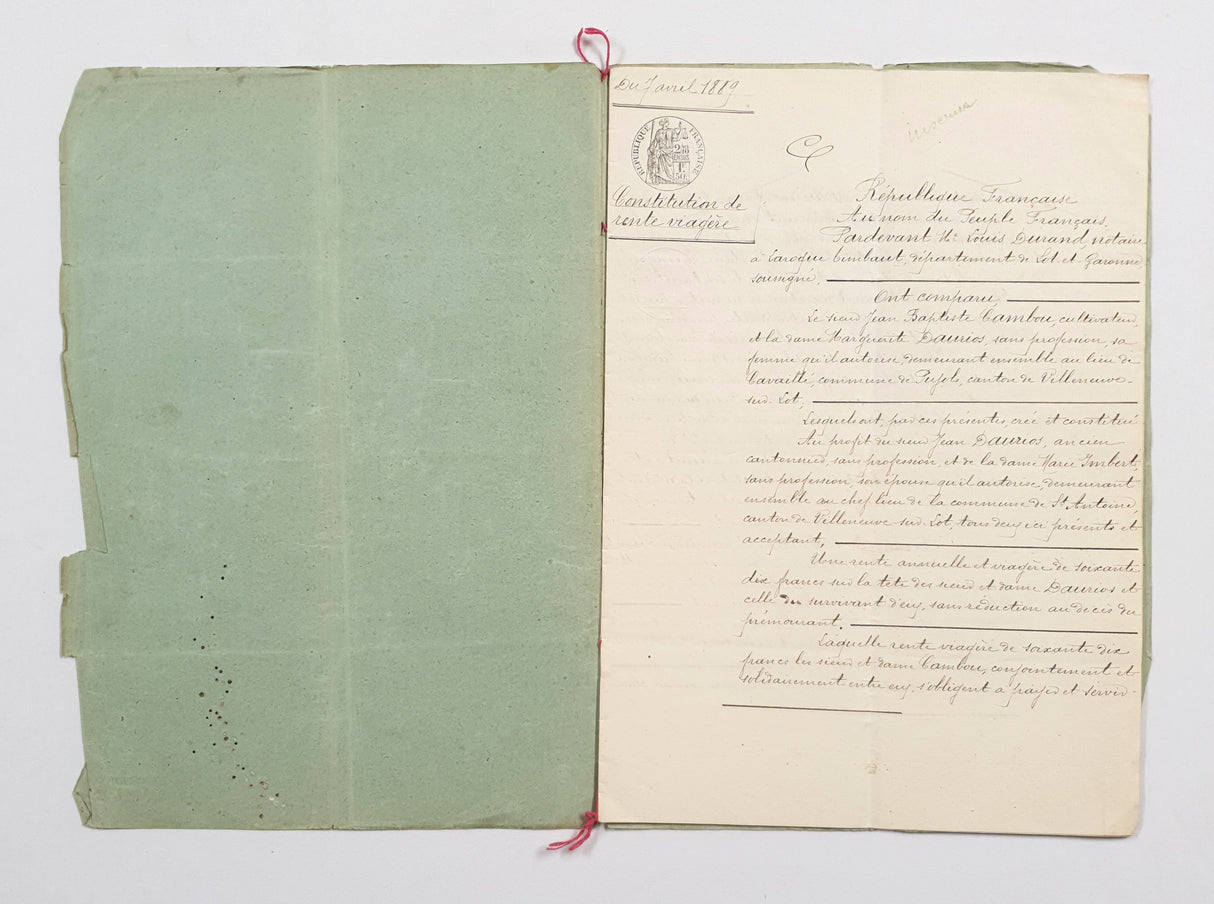 Du 7 avril 1889
RÉPUBLIQUE FRANÇAISE
2/10 EN SUS
1F 50c
Constitution de
rente viagère
République Française
Au nom du Peuple Français
Pardevant Me Louis Durand, notaire
à Laroque Timbaut, département de Lot-et-Garonne
soussigné,
Ont comparu,
Le sieur Jean Baptiste Cambou, cultivateur,
et la dame Marguerite Daurios, sans profession, sa
femme qu'il autorise, demeurant ensemble au lieu de
Cavaillé, commune de Pujols, canton de Villeneuve-
sur-Lot,
Lesquels ont, par ces présentes, créé et constitué
Au profit du sieur Jean Daurios, ancien
cantonnier, sans profession, et de la dame Marie Imbert,
sans profession, son épouse qu'il autorise, demeurant
ensemble au chef lieu de la commune de St Antoine,
canton de Villeneuve-sur-Lot, tous deux ici présents et
acceptant,
Une rente annuelle et viagère de soixante
dix francs sur la tête des sieur et dame Daurios et
celle du survivant d'eux, sans réduction au décès du
prémourant.
Laquelle rente viagère de soixante dix
francs les sieur et dame Cambou, conjointement et
solidairement entre eux, s'obligent à payer et servir-